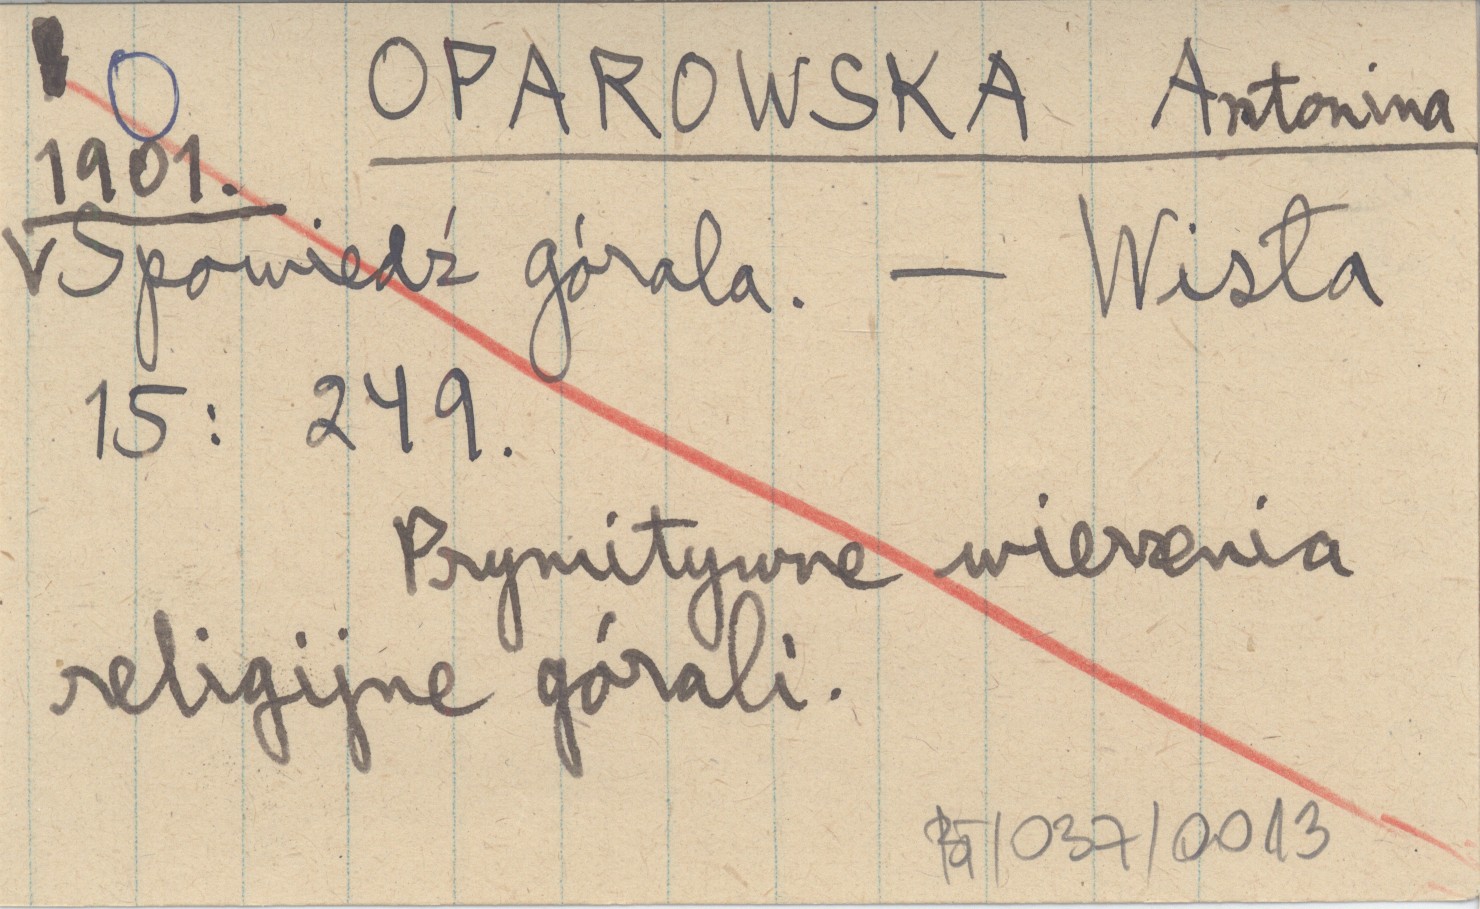 O OPAROWSKA Antonina
1901.
v Spowiedź górala. — Wisła
15: 249.
Prymitywne wierzenia
religijne górali.
/037/0013